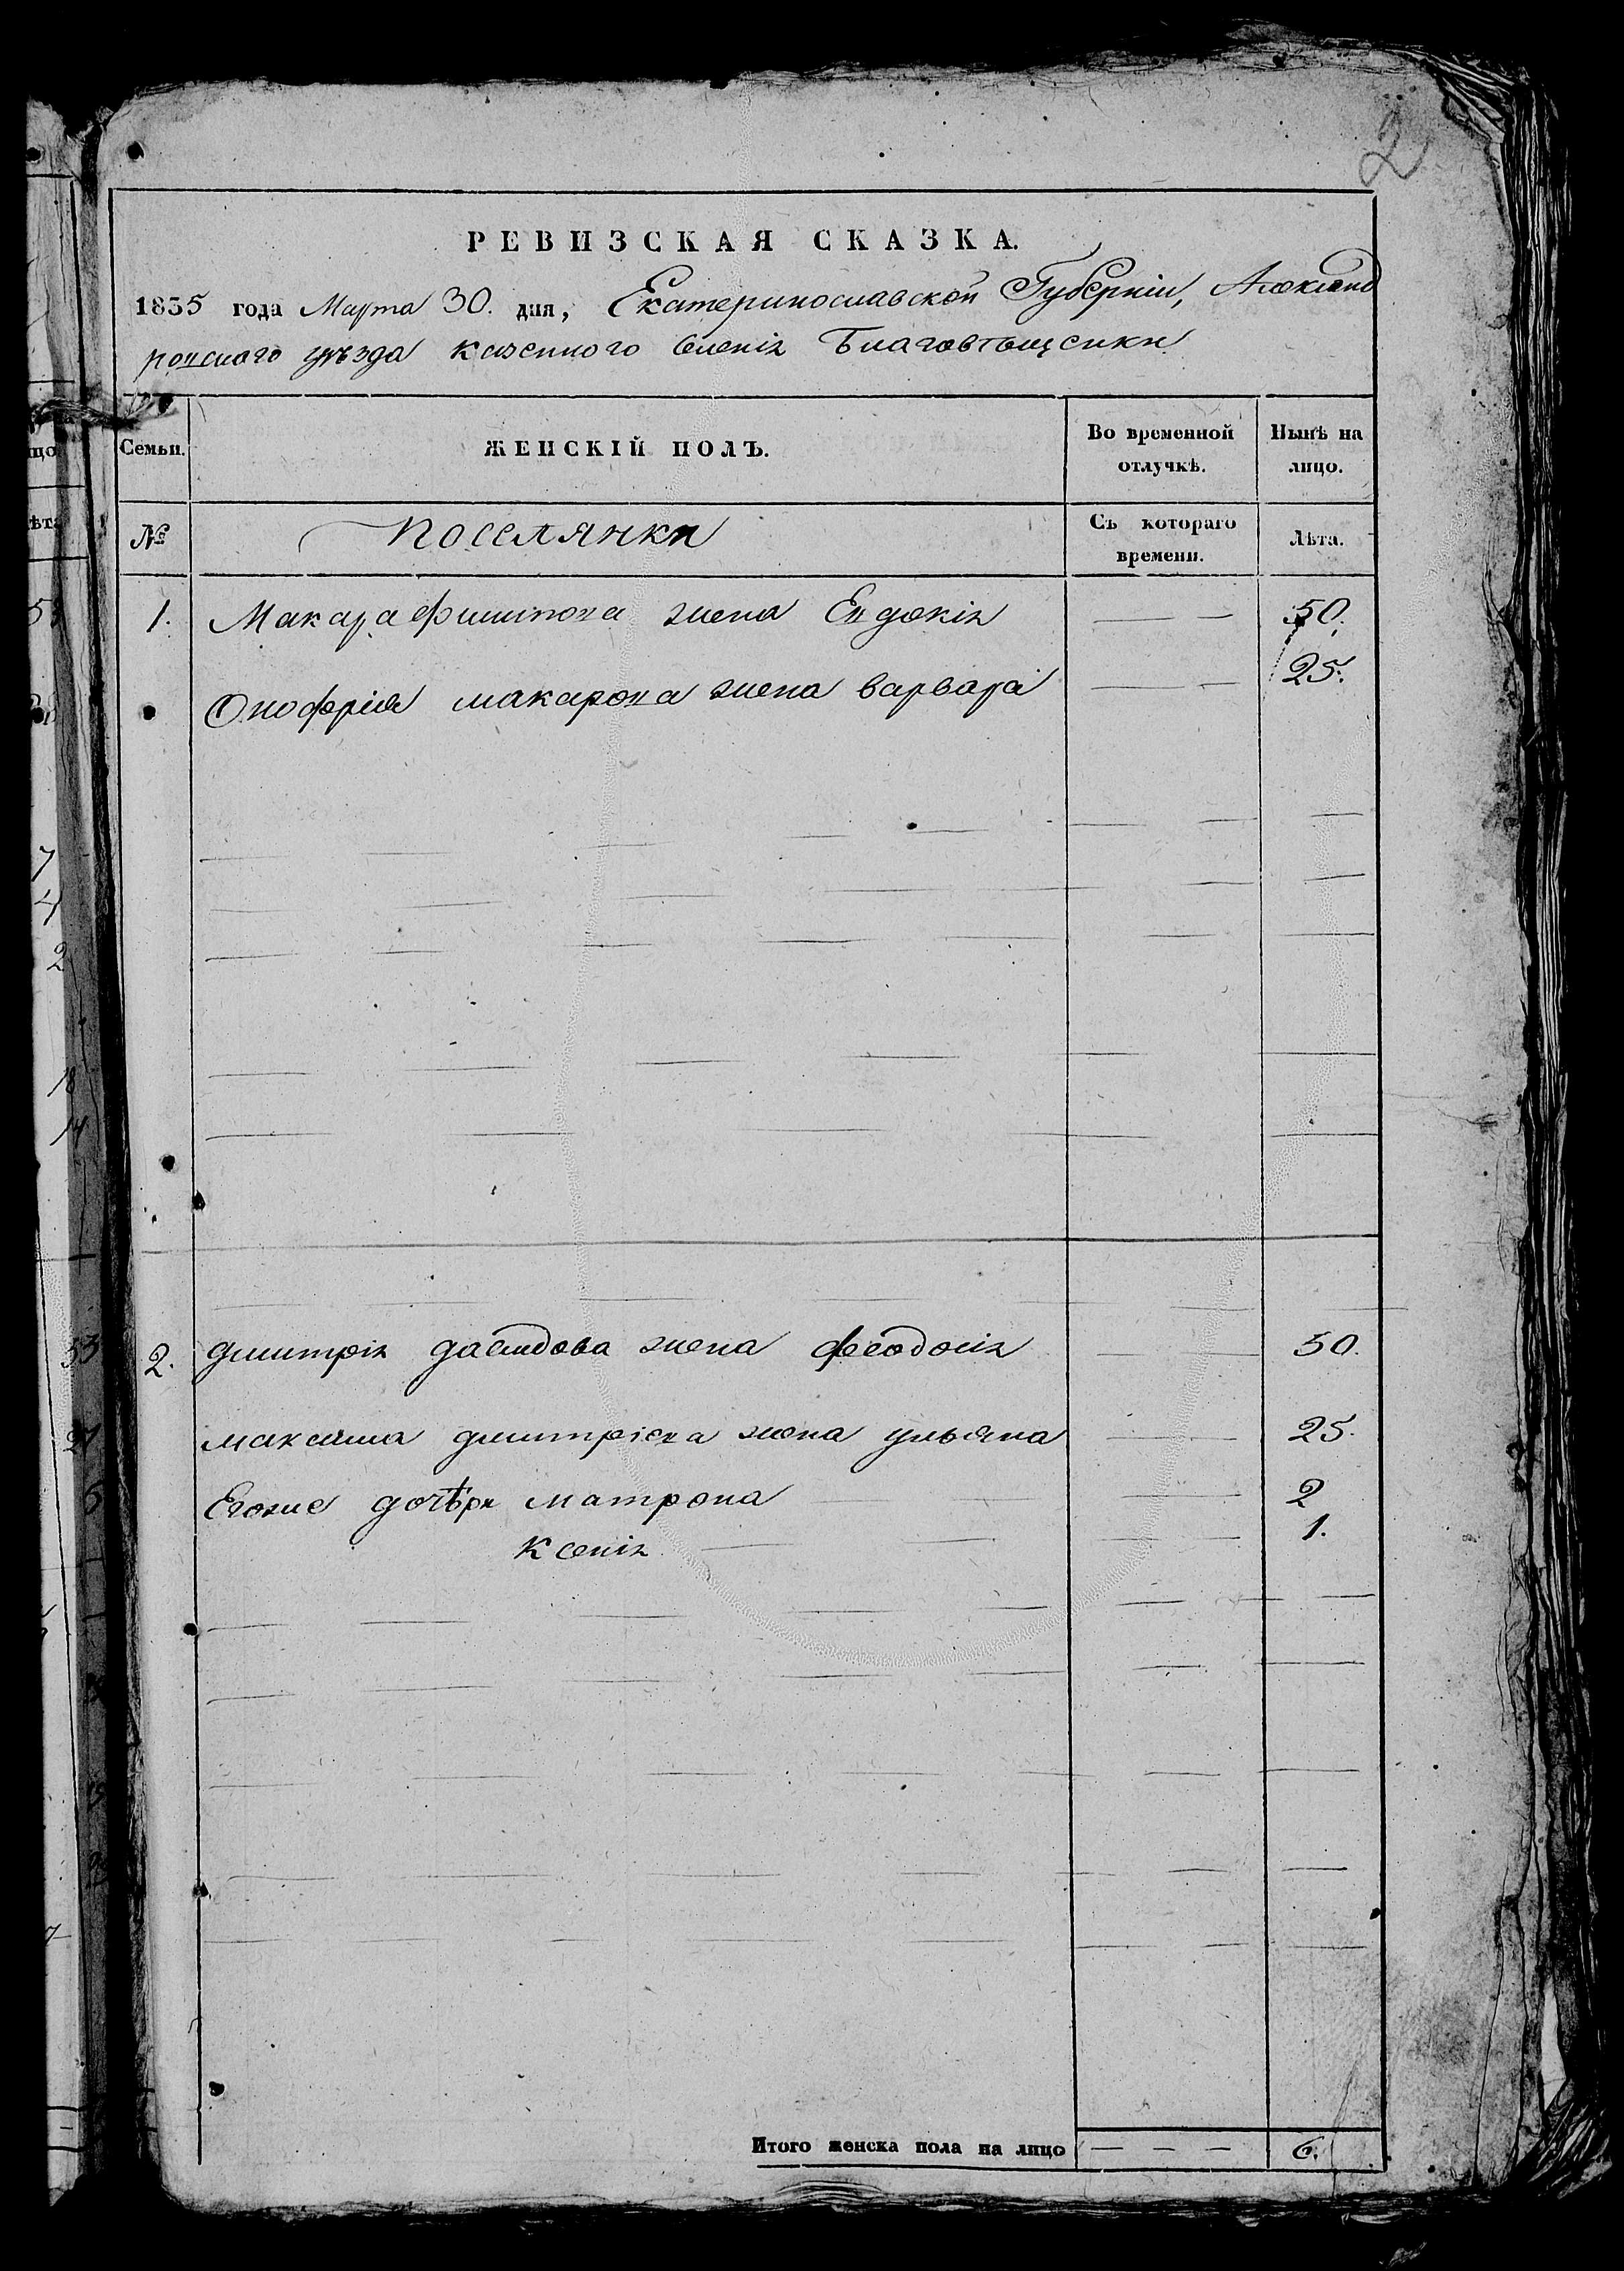 2
РЕВИЗСКАЯ СКАЗКА.
1835 года Марта 30. дня, Екатеринославской Губерніи, Александ
ровского уѣзда казенного селенія Благовѣщенки
Семьи.
ЖЕНСКІЙ ПОЛЪ.
Во временной
отлучкѣ.
Нынѣ на
лицо.
№
Поселянки
Съ котораго
времени.
Лѣта.
1. Макара Филипова жена Евдокія 50.
Онофрія макарова жена варвара 25.
2. дмитрія давидова жена феодосія 50.
максима дмитріева жена ульяна 25.
Егоже дочѣри матрона 2
Ксенія 1.
Итого женска пола на лицо 6.